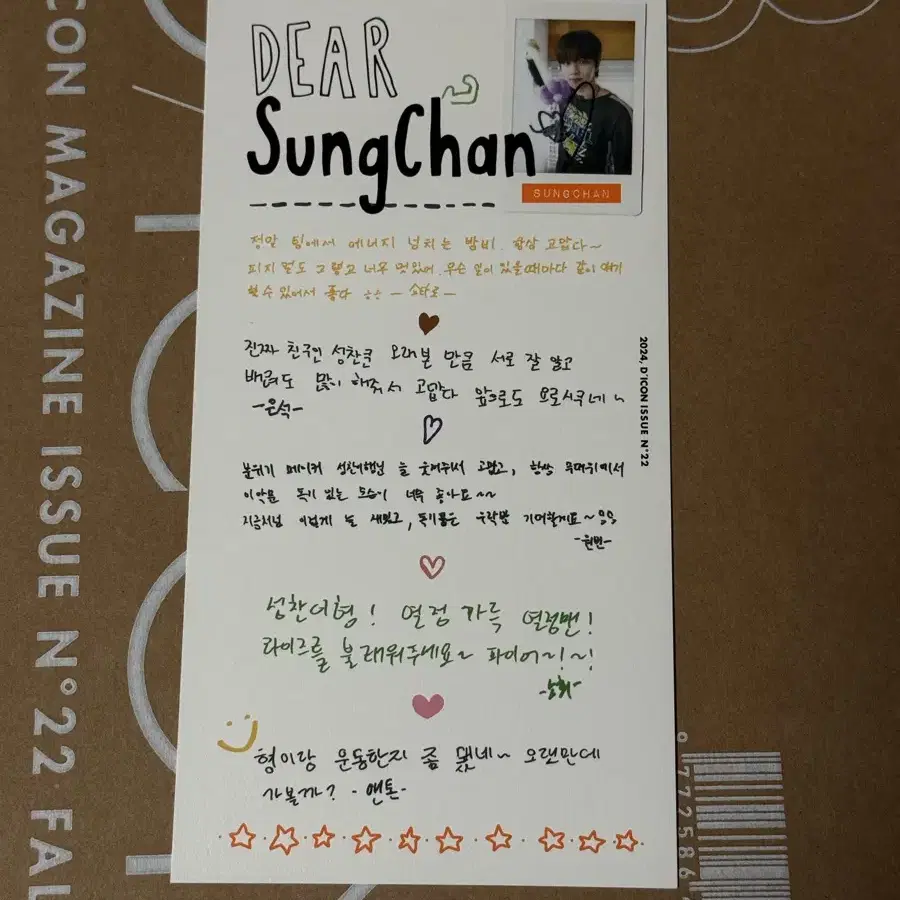 DEAR
SungChan
SUNGCHAN
정말 팀에서 에너지 넘치는 밤비. 항상 고맙다~
피지컬도 그렇고 너무 멋있어. 무슨 일이 있을때마다 같이 얘기
할 수 있어서 좋다 ㅎㅎ - 쇼타로 -
진짜 친구인 성찬쿤 오래본 만큼 서로 잘 알고
배려도 많이 해줘서 고맙다 앞으로도 요로시쿠네~
-은석-
분위기 메이커 성찬이형님 늘 웃겨주셔서 고맙고, 항상 무대위에서
이 악물 독기 있는 모습이 너무 좋아요~~
지금처럼 이렇게 늘
기대할게요~
-원빈-
성찬이형! 열정 가득 열정맨!
라이즈를 불태워주세요~ 파이어~!~!
-소희-
형이랑 운동한지 좀 됐네~ 오랜만에
가볼까? -앤톤-
2024, D'ICON ISSUE N°22
CON MAGAZINE ISSUE N°22 FAL
977258